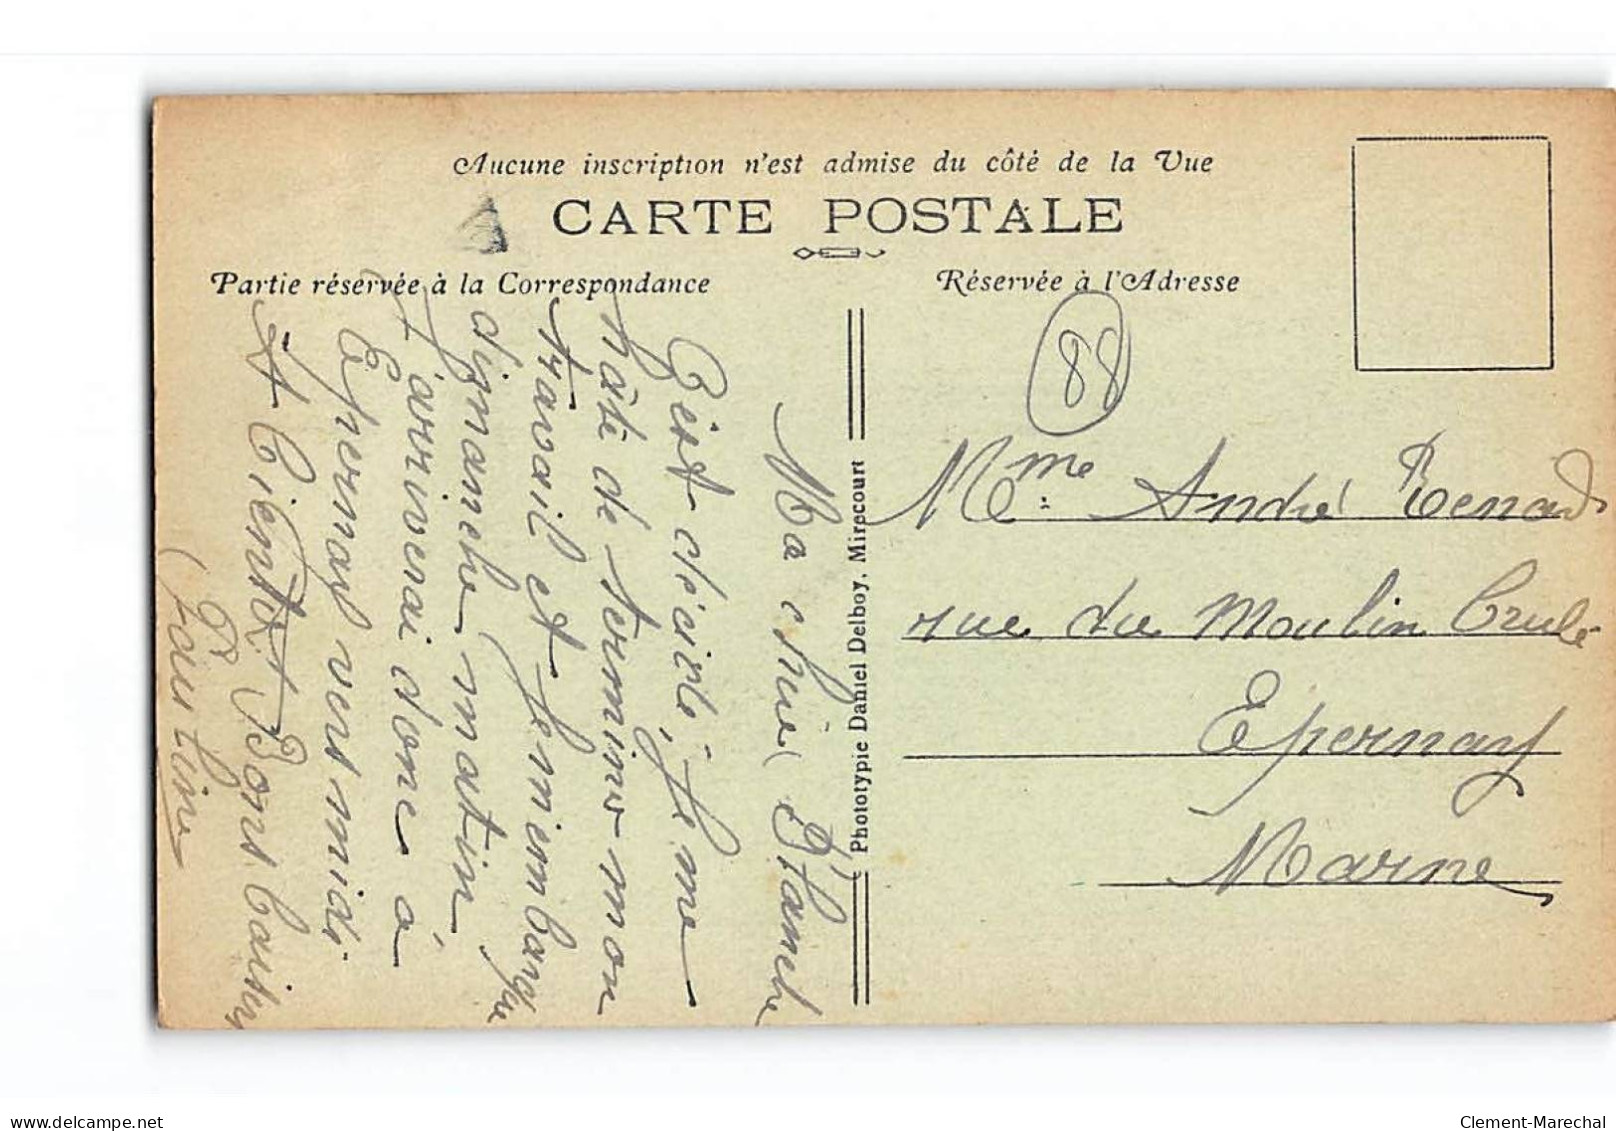 Aucune inscription n'est admise du côté de la Vue
CARTE POSTALE
Partie réservée à la Correspondance
Réservée à l'Adresse
88
Ma chère Blanche
C'est décidé, je me
hâte de terminer mon
travail et je m'embarque
dimanche matin
j'arriverai donc à
Epernay vers midi
A Bientôt Bons baisers
Faustine
Phototypie Daniel Delboy, Mirecourt
Mme André Renard
rue du Moulin Brulé
Epernay
Marne
delcampe.net
Clement-Marechal